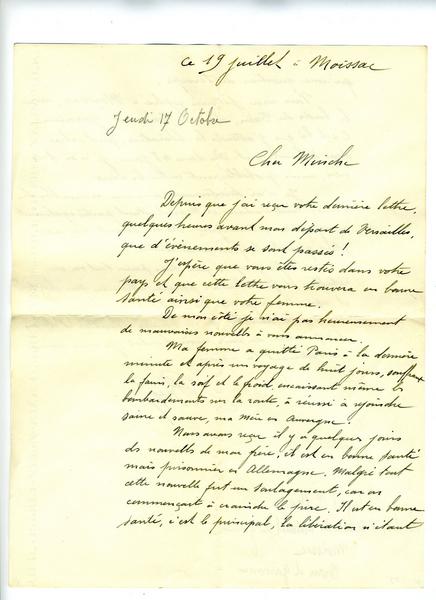 ce 19 juillet à Moissac
Jeudi 17 Octobre
Cher Miniche
Depuis que j'ai reçu votre dernière lettre,
quelques heures avant mon départ de Versailles,
que d'évènements se sont passés !
J'espère que vous êtes restés dans votre
pays et que cette lettre vous trouvera en bonne
santé ainsi que votre femme.
De mon côté je n'ai pas heureusement
de mauvaises nouvelles à vous annoncer.
Ma femme a quitté Paris à la dernière
minute et après un voyage de huit jours, souffrant
la faim, la soif et le froid, encaissant même les
bombardements sur la route, à réussi à rejoindre
saine et sauve, ma mère en Auvergne.
Nous avons reçu il y a quelques jours
des nouvelles de mon frère, il est en bonne santé
mais prisonnier en Allemagne. Malgré tout
cette nouvelle fut un soulagement, car on
commençait à craindre le pire. Il est en bonne
santé, c'est le principal, la libération n'étant